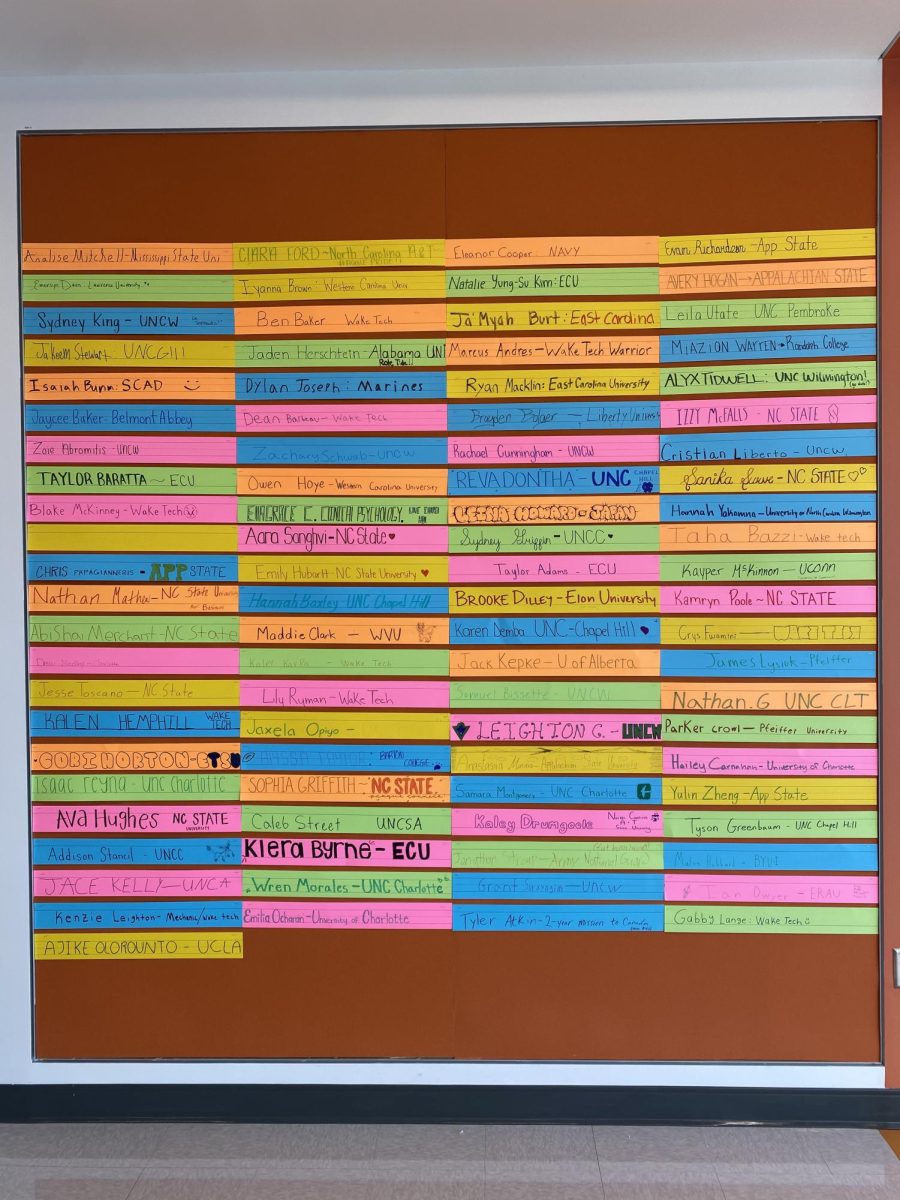 Analise Mitchell-Mississippi State Uni
Lawrence University
Sydney King - UNCW
Jakeem Stewart: UNCG!!!
Isaiah Bunn: SCAD
Jaycee Baker-Belmont Abbey
Zoie Abromitis-UNCW
TAYLOR BARATTA ~ ECU
Blake McKinney-Wake Tech
CHRIS PAPAGIANNERIS - APP STATE
Nathan Mathew-NC State University
for Business
Abishai Merchant-NC State
Jesse Toscano - NC State
KALEN HEMPHILL WAKE TECH
CORI HORTON-ETSU
Isaac Reyna - UNC Charlotte
Ava Hughes NC STATE
UNIVERSITY
Addison Stancil - UNCC
JACE KELLY-UNCA
Kenzie Leighton-Mechanic/wake tech
AJIKE OLOROUNTO - UCLA
CIARA FORD-North Carolina A&T
Iyanna Brown: Western Carolina Univ.
Ben Baker Wake Tech
Jaden Herschtein-Alabama UNI
Role Tide!!
Dylan Joseph: Marines
Dean - Wake Tech
Zachary Schwab-UNCW
Owen Hoye-Western Carolina University
EMAGRACE C. CLINICAL PSYCHOLOGY.
Aara Sanghvi-NC State
Emily Hubart-NC State University
Hannah Baxley-UNC Chapel Hill
Maddie Clark - WVU
- Wake Tech
Lily Ryman-Wake Tech
Jaxela Opiyo -
BARTON COLLEGE
SOPHIA GRIFFITH - NC STATE
Caleb Street UNCSA
Kiera Byrne- ECU
Wren Morales-UNC Charlotte
Emilia Ocharan-University of Charlotte
Eleanor Cooper: NAVY
Natalie Yung-Su Kim: ECU
Ja'Myah Burt: East Carolina
Marcus Andres-Wake Tech Warrior
Ryan Macklin: East Carolina University
Brayden Bolger - Liberty University
Rachael Cunningham - UNCW
REVA DONTHA - UNC CHAPEL HILL
HOWARD - JAPAN
Sydney Griffin-UNCC
Taylor Adams - ECU
BROOKE DILLEY-Elon University
Karen Bemba UNC-Chapel Hill
Jack Kepke-U of Alberta
Samuel Bissette - UNCW
LEIGHTON C. - UNCW
Anastasia - Appalachian State University
Samara Montgomery - UNC Charlotte
Kaley Drumgoole North Carolina A+T State University
Jonathan - Army National Guard
Grant - UNCW
Tyler Atkin-2-year mission to Canada
Evan Richardson-App State
AVERY HOGAN → APPALACHIAN STATE
Leila Utate UNC Pembroke
MIAZION WAYTEN Randolph College
ALYX TIDWELL: UNC Wilmington!
IZZY McFALLS - NC STATE
Cristian Liberto - Uncw
Sanika - NC STATE
Hannah Yakamna-University of North Carolina Wilmington
Taha Bazzi-Wake tech
Kayper McKinnon-UCONN
Kamryn Poole ~ NC STATE
Crys
James Lysiuk-Pfeiffer
Nathan. G UNC CLT
Parker crowl- Pfeiffer University
Hailey Carnahan-University of Charlotte
Yulin Zheng-App State
Tyson Greenbaum - UNC Chapel Hill
Ian Dwyer - ERAU
Gabby Lange: Wake Tech